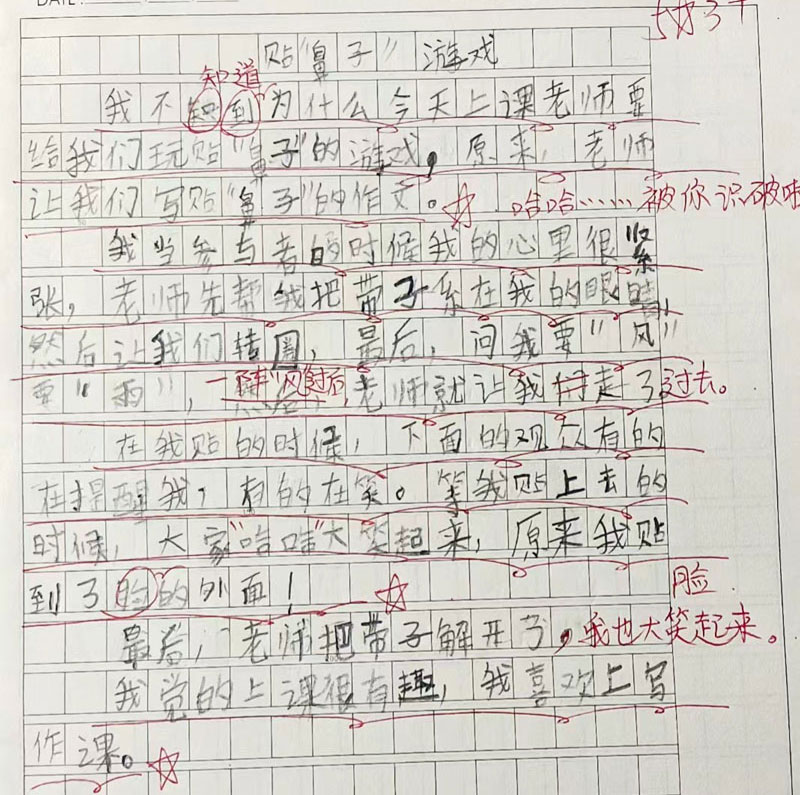 DATE:
5☆3+
贴"鼻子"游戏
知道
我不知到为什么今天上课老师要
给我们玩贴"鼻子"的游戏,原来,老师
让我们写贴"鼻子"的作文。☆ 哈哈……被你识破啦
我当参与者的时候我的心里很紧
张,老师先帮我把带子系在我的眼睛,
然后让我们转圈,最后,问我要"风"
要"雨",一阵"风"过后,老师就让我们走了过去。
在我贴的时候,下面的观众有的
在提醒我,有的在笑。等我贴上去的
时候,大家"哈哇"大笑起来,原来我贴
到了脸的外面! ☆ 脸
最后,老师把带子解开了,我也大笑起来。
我觉的上课很有趣,我喜欢上写
作课。☆